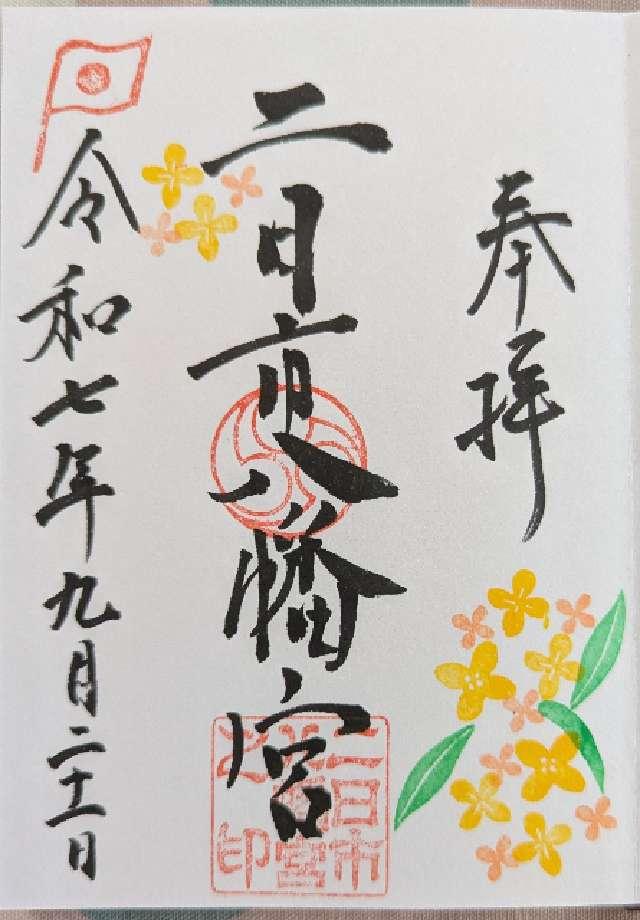 奉拝
二日市八幡宮
二日市
八幡宮
之印
令和七年九月二十一日